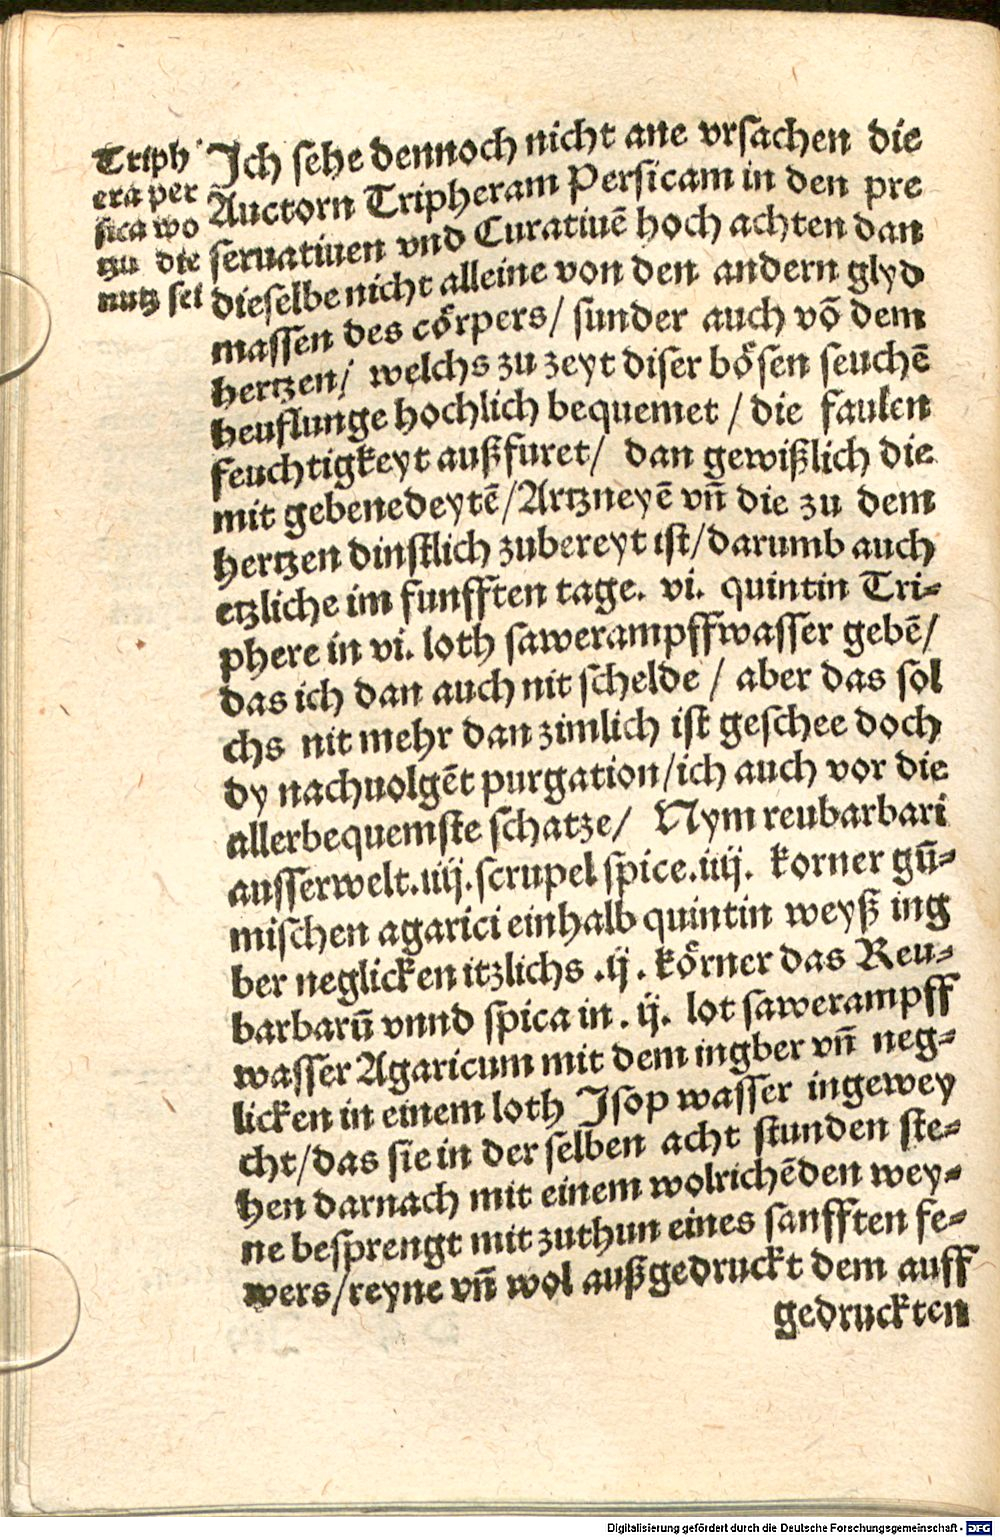 Triph
era per
sica wo
tzu die
nutz sei
Ich sehe dennoch nicht ane vrsachen die
Auctorn Tripheram Persicam in den pre
seruatiuen vnd Curatiuē hoch achten dan
dieselbe nicht alleine von den andern glyd
massen des cörpers/ sunder auch vō dem
hertzen/ welchs zu zeyt diser bösen seuchē
heuflunge hochlich bequemet / die faulen
feuchtigkeyt außfuret/ dan gewißlich die
mit gebenedeytē/Artzneyē vn̄ die zu dem
hertzen dinstlich zubereyt ist/darumb auch
etzliche im funfften tage. vi. quintin Tri⸗
phere in vi. loth sawerampffwasser gebē/
das ich dan auch nit schelde / aber das sol
chs nit mehr dan zimlich ist geschee doch
dy nachuolgēt purgation/ich auch vor die
allerbequemste schatze/ Nym reubarbari
ausserwelt.iiij.scrupel spice.iiij. korner gū⸗
mischen agarici einhalb quintin weyß ing
ber neglicken itzlichs .ij. körner das Reu⸗
barbarū vnnd spica in . ij. lot sawerampff
wasser Agaricum mit dem ingber vn̄ neg⸗
licken in einem loth Jsop wasser ingewey
cht/das sie in der selben acht stunden ste⸗
hen darnach mit einem wolrichēden wey⸗
ne besprengt mit zuthun eines sanfften fe⸗
wers/reyne vn̄ wol außgedruckt dem auff
gedruckten
Digitalisierung gefördert durch die Deutsche Forschungsgemeinschaft - DFG